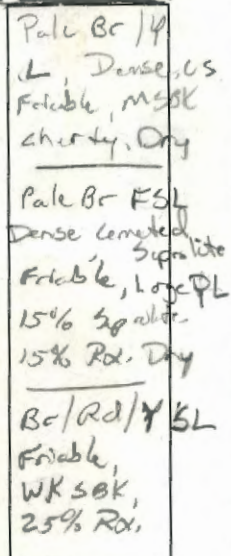 Pale Br / Y
L, Dense, CS
Friable, MSBK
Cherty, Dry
Pale Br FSL
Dense Cemented
Saprolite
Friable, Large PL
15% Saprolite
15% Rox. Dry
Br/Rd/Y SL
Friable,
WK SBK,
25% Rox.